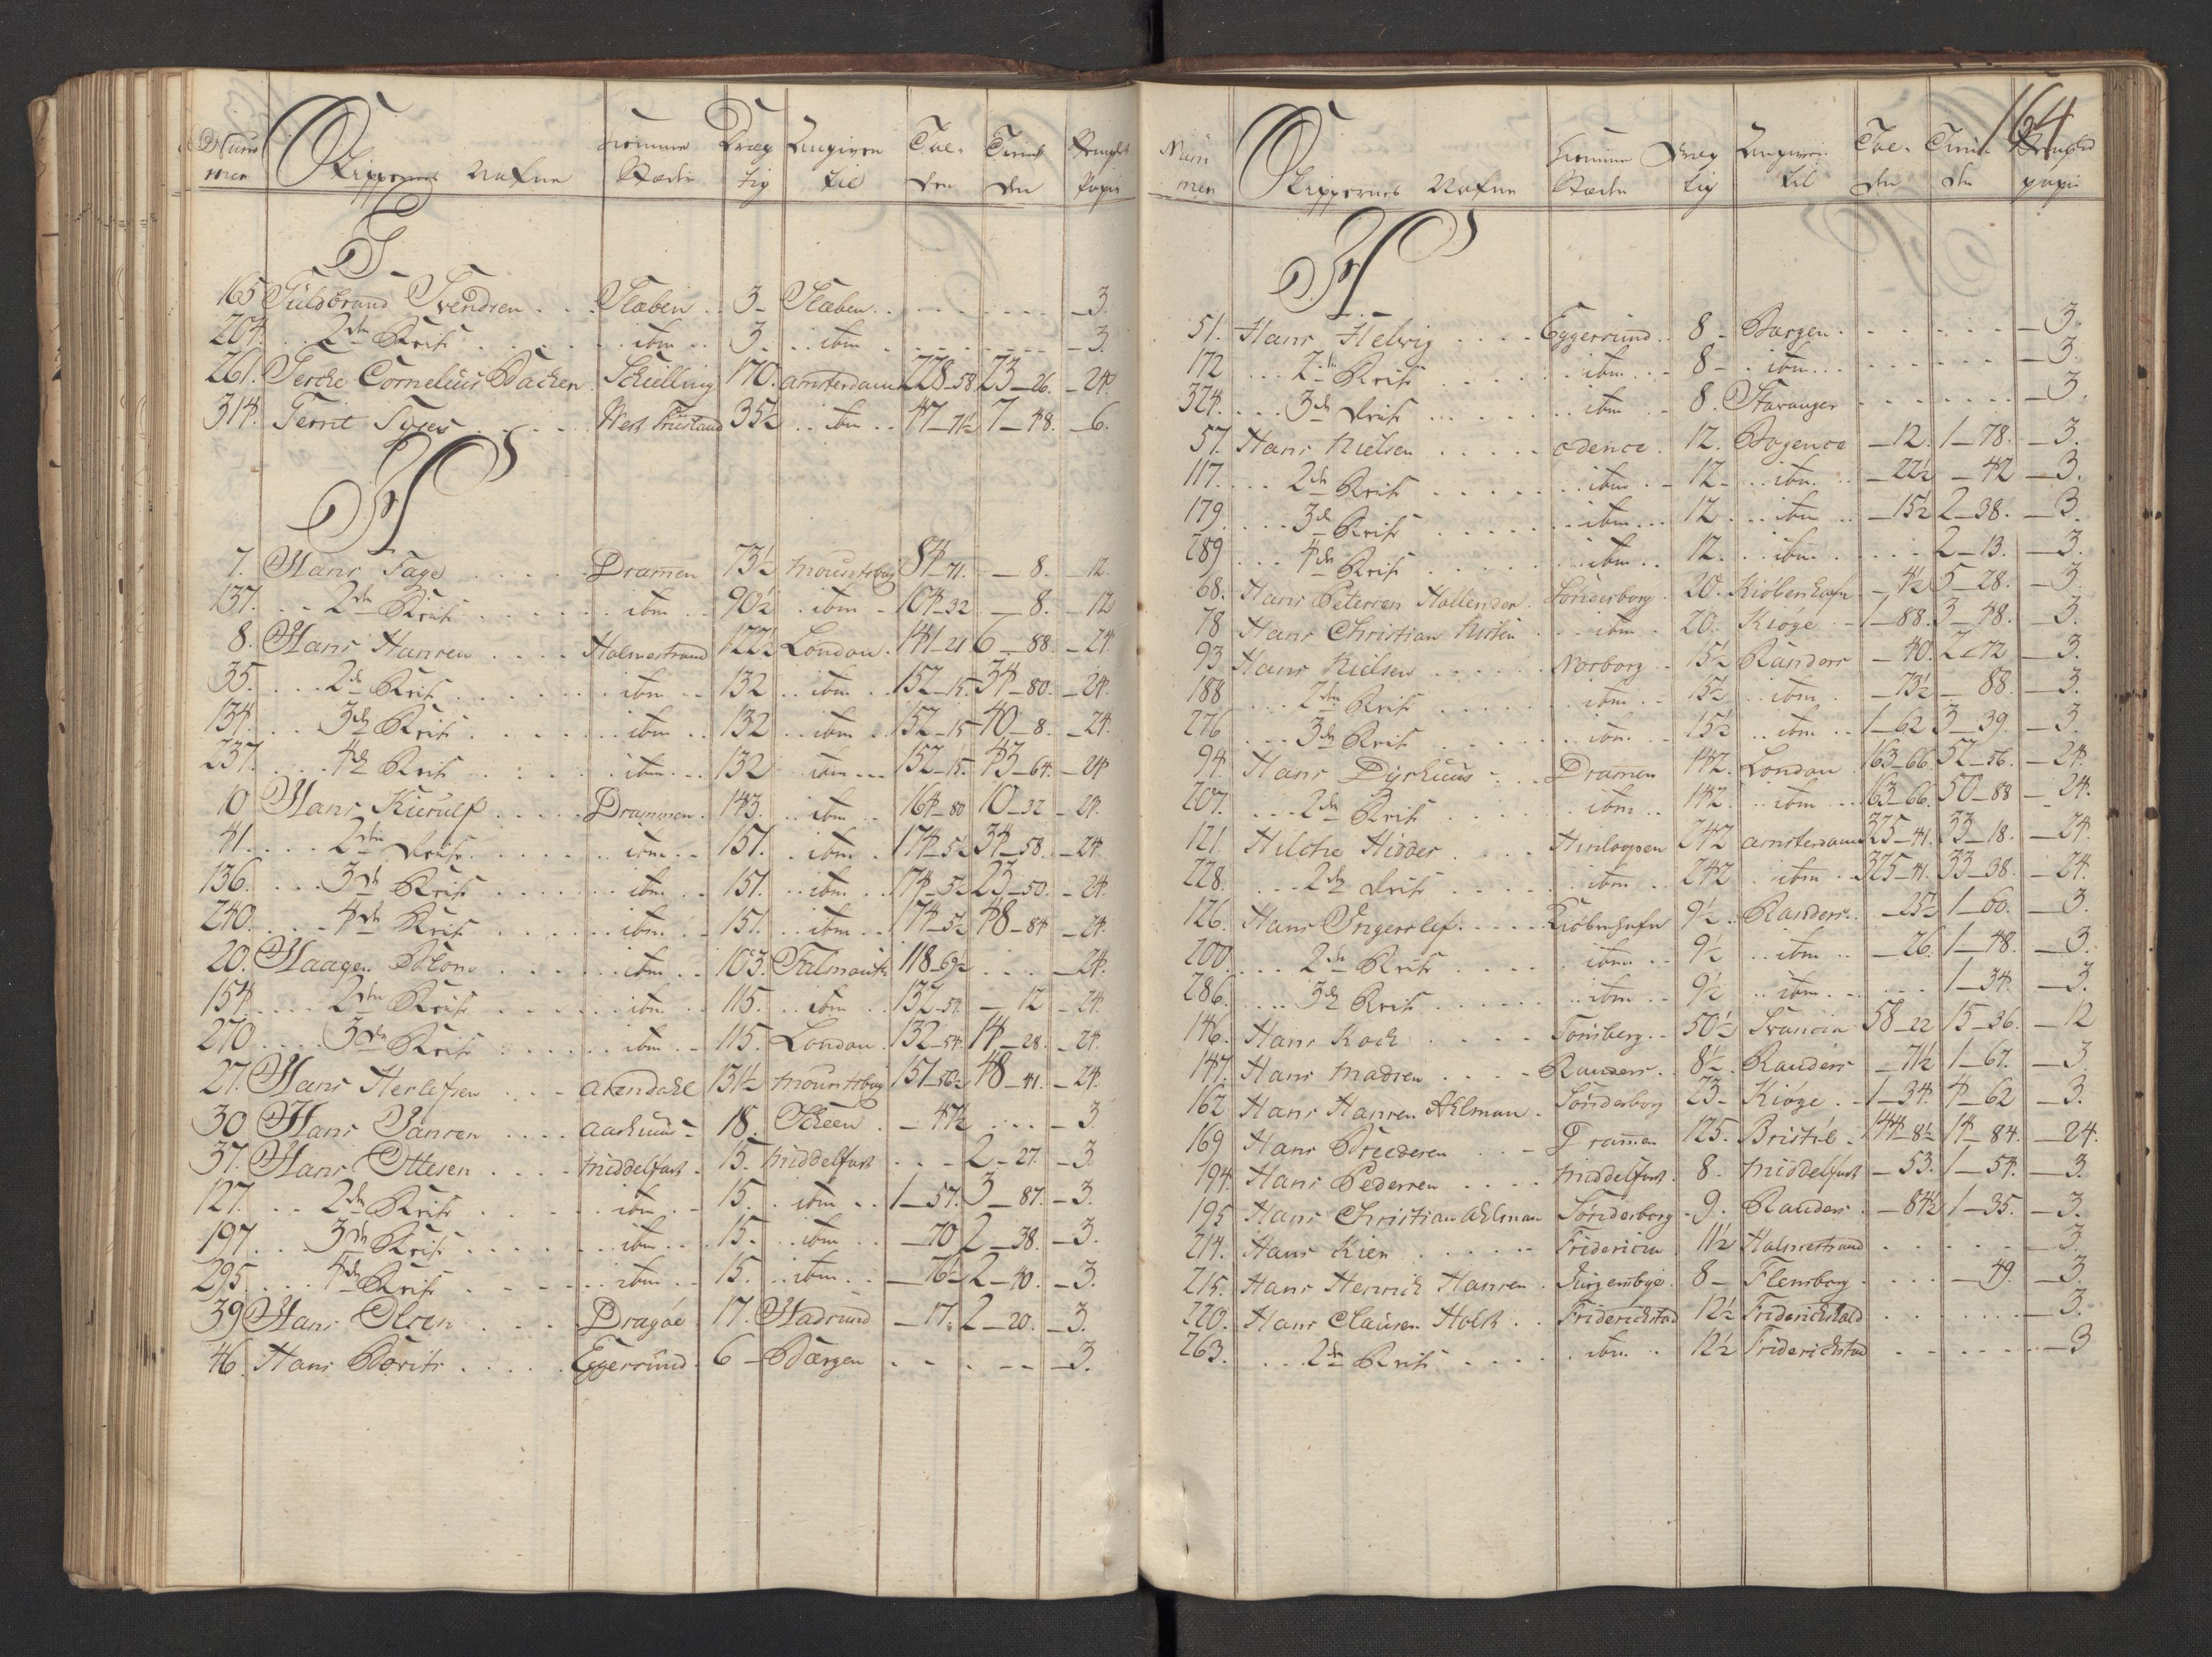 Num̅ Skippernes Nafne Hiemme Dræg Angiven Tol- Tiend Stemplet
mer Stæder tig til den den Papir
G
165 Guldbrand Svendsen . . . Slæben . . 3 - Slæben . . _ 3.
204. . . 2den Reise . . . ibm . . 3. . . ibm _ 3.
261. Gerche Cornelius Backer. Schelling 170. amsterdam 228_58 23_26. _24.
314. Gerrit . . . West Friesland 35½ . . ibm . . 47_71½ 7_48. _6.
H
7. Hans Fage . . . Dramen 73½ 84_71. _ 8. _12.
137. . . 2den Reise . . . ibm . . 90½ . ibm - 104_32 _ 8. _12
8. Hans Hansen . . . Holmestrand 122½ London. 141_21 6_88. _24.
35. . . 2de Reise . . . ibm . . 132 . . ibm . . 152_15. 34_80. _24.
134. . . 3de Reise . . . ibm . . 132 . . ibm . . 152_15 40_8. _24.
237. . . 4de Reise . . . ibm . . 132 . . ibm . . 152_15. 43_64. _24
10 Hans Kierulf . . . Drammen. 143. . . ibm . . 164_80 10_32 _24.
41. . . 2den Reise . . . ibm . . 151. . ibm . 174_52 34_58. _24.
136. . . 3de Reise . . . ibm . . 151. . . ibm . . 174_52 23_50. _24.
240. . . 4de Reise . . . ibm . . 151. . . ibm . . 174_52 48_84 _24.
20. Haagen . . . ibm . . 103. Falmouth 118_69½ . . . _24.
154. . . 2den Reise . . . ibm . . 115. . . ibm . . 132_54. _ 12 _24.
270. . . 3de Reise . . . ibm . . 115. London. 132_54. 14_28. _24.
27. Hans Herlofsen . . . arendahl 131½ 151_56½ 48_41. _24.
30. Hans Jansen . . . aarhuus - 18. Scheen . _47½ . . . _3.
37. Hans Ottesen . . . middelfart . 15. middelfart . . . 2_27. _3.
127. . . 2de Reise . . . ibm . . 15. . ibm . . 1_57. 3_87. _3.
197. . . 3de Reise . . . ibm . . 15. . . ibm . . _70 2_38. _3.
295. . . 4de Reise . . . ibm . . 15. . . ibm . . _76½ 2_40. _3.
39 Hans Olsen . . . Dragöe . 17. Hadsund _17. 2_20. _3.
46. Hans . . . Eggersund . 6 - Bærgen . . . _3.
164
Num̅ Skippernes Nafne Hiemme Dræg Angiven Tol- Tien- Stemplet
mer Stæder tig til den den papir
H
51. Hans Helvig . . . Eggersund . 8 - Bærgen . . . _3.
172 . . 2de Reise . . . ibm . . 8 - . ibm . . . _3.
324. . . 3de Reise . . . ibm . . 8. Stavanger . . . _3.
57. Hans Nielsen . . . odence . 12. Bogence _12. 1_78. _3.
117. . . 2de Reise . . . ibm . . 12. . . ibm . . _22½ _42 _3.
179. . . 3de Reise . . . ibm . . 12. . . ibm . . _15½ 2_38. _3.
289. . . 4de Reise . . . ibm . . 12. . . ibm . . . 2_13. _3.
68. Hans Petersen Hollender. Sönderborg. 20. Kiöbenhafn _4½ 5_28. _3.
78 Hans Christian . . ibm . 20. Kiöge . 1_88. 3_48. _3.
93 Hans Nielsen . . . Norborg . 15½ Randers _40. 2_72 _3.
188 . . 2den Reise . . . ibm . . 15½ . . ibm . _73½ _ 88. _3.
276 . . 3de Reise . . . ibm . . 15½ . . ibm . . 1_62 3_39. _3.
94. Hans Dyrhuus . . . Dramen 142. London 163_66. 52_56. _24.
207. . . 2de Reise . . . ibm . . 142. . . ibm . . 163_66. 50_88 _24.
121. Hilche Hidder . . . Hinlopen 242 amsterdam 325_41. 33_18. _24.
228. . . 2de Reise . . . ibm . . 242 . ibm . 325_41. 33_38. _24.
126. Hans Ingerslef. . . . Kiöbenhafn 9½. Randers . _25½ 1_60. _3.
200. . . 2de Reise . . . ibm . . 9½ . . ibm . . _26. 1_48. _3.
286. . . 3de Reise . . . ibm . . 9½ . . ibm . . . 1_34. _3.
146. Hans Koch . . . Tönsberg. 50½ Francia 58_22 15_36. _12
147. Hans Madsen . . . Randers . 8½. Randers _71½ 1_67. _3.
162 Hans Hansen Ahlman . Sönderborg 23 - Kiöge . . 1_34. 4_62 _3.
169 Hans . . . Dramen 125. Bristol . 144_8½ 14_84. _24.
194. Hans Pedersen . . . middelfart . 8. middelfart _53. 1_54. _3.
195 Hans Christian ahlman Sönderborg . 9. Randers . _84½ 1_35. _3.
214. Hans Kier . . . Fridericia . 11½ Holmestrand . . . _3.
215. Hans Henrich Hansen . 8 - Flensborg . . . _49. _3.
220. Hans Clausen Holst . . Friderichstad 12½ Friderichshald . . . _3.
263. . . 2de Reise . . . ibm . . 12½ Friderichstad . . . _3